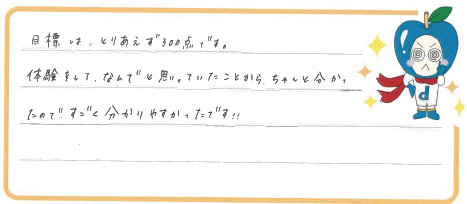 目標は、とりあえず300点です。
体験をして、なんでと思っていたことから、ちゃんと分かっ
たので、すごく分かりやすかったです!!
d